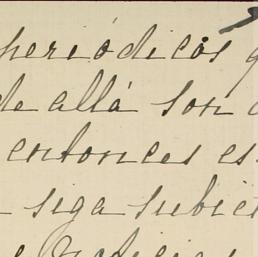 periódicos
de allá son
entonces es
siga subie